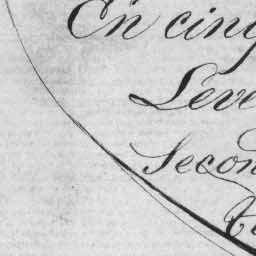 En cinq
Leve
Secon